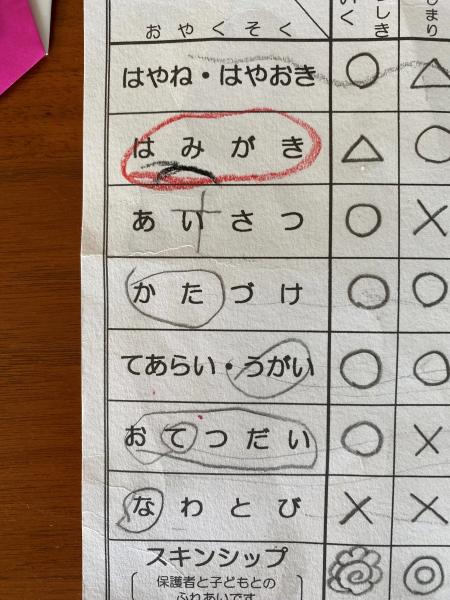 おやくそく
はやね・はやおき ○ △
はみがき △ ○
あいさつ ○ ×
かたづけ ○ ○
てあらい・うがい ○ ○
おてつだい ○ ×
なわとび × ×
スキンシップ ◎
保護者と子どもとの
ふれあいです